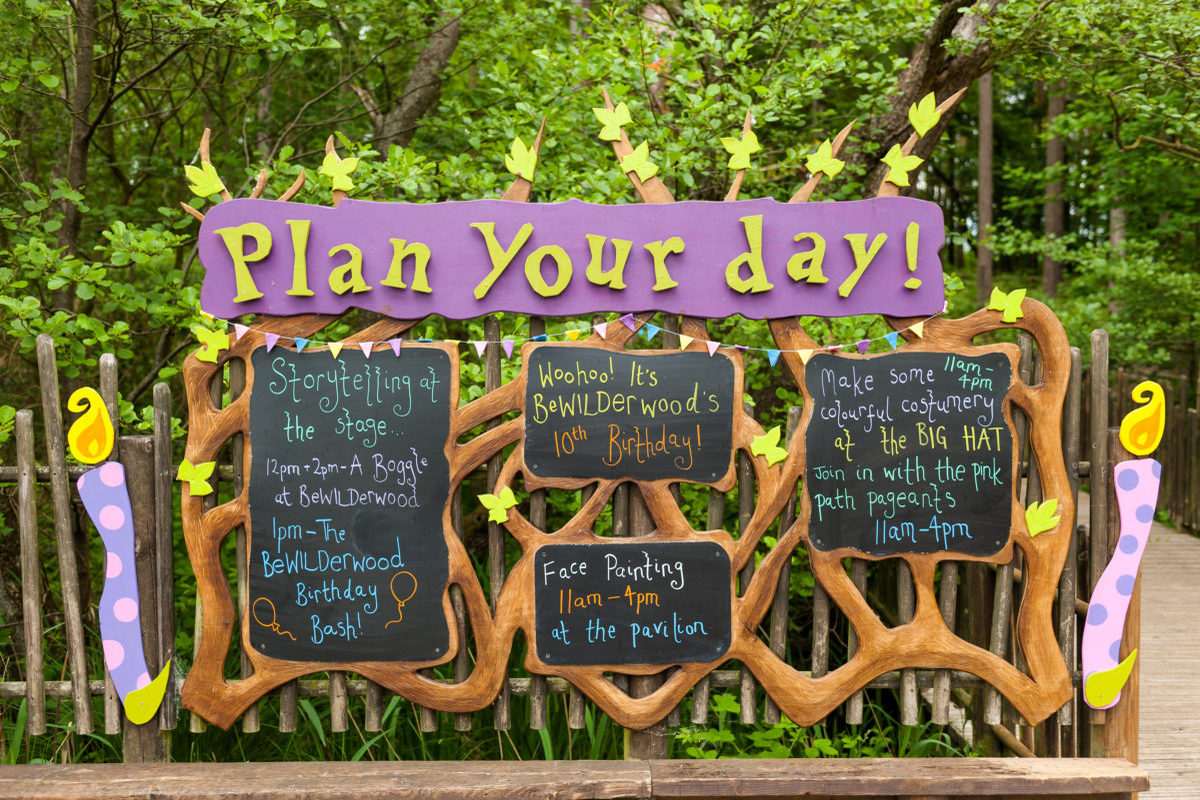 Plan your day!
Storytelling at
the stage...
12pm + 2pm - A Boggle
at BeWILDerwood
1pm - The
BeWILDerwood
Birthday
Bash!
Woohoo! It's
BeWILDerwood's
10th Birthday!
Face Painting
11am - 4pm
at the pavilion
Make some 11am -
4pm
colourful costumery
at the BIG HAT
Join in with the pink
path pageants
11am - 4pm